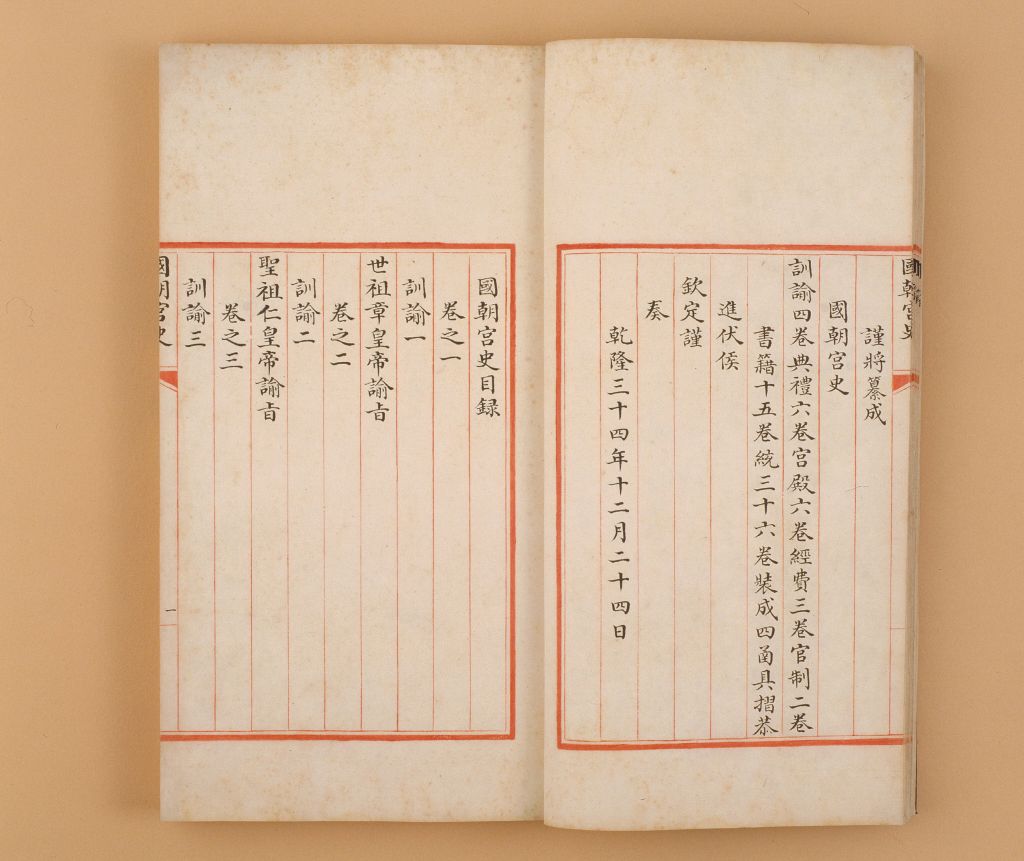 國朝宮史
謹將纂成
國朝宮史
訓諭四卷典禮六卷宮殿六卷經費三卷官制二卷
書籍十五卷統三十六卷裝成四函具摺恭
進伏侯
欽定謹
奏
乾隆三十四年十二月二十四日
國朝宮史目録
卷之一
訓諭一
世祖章皇帝諭旨
卷之二
訓諭二
聖祖仁皇帝諭旨
卷之三
訓諭三
國朝宮史
一